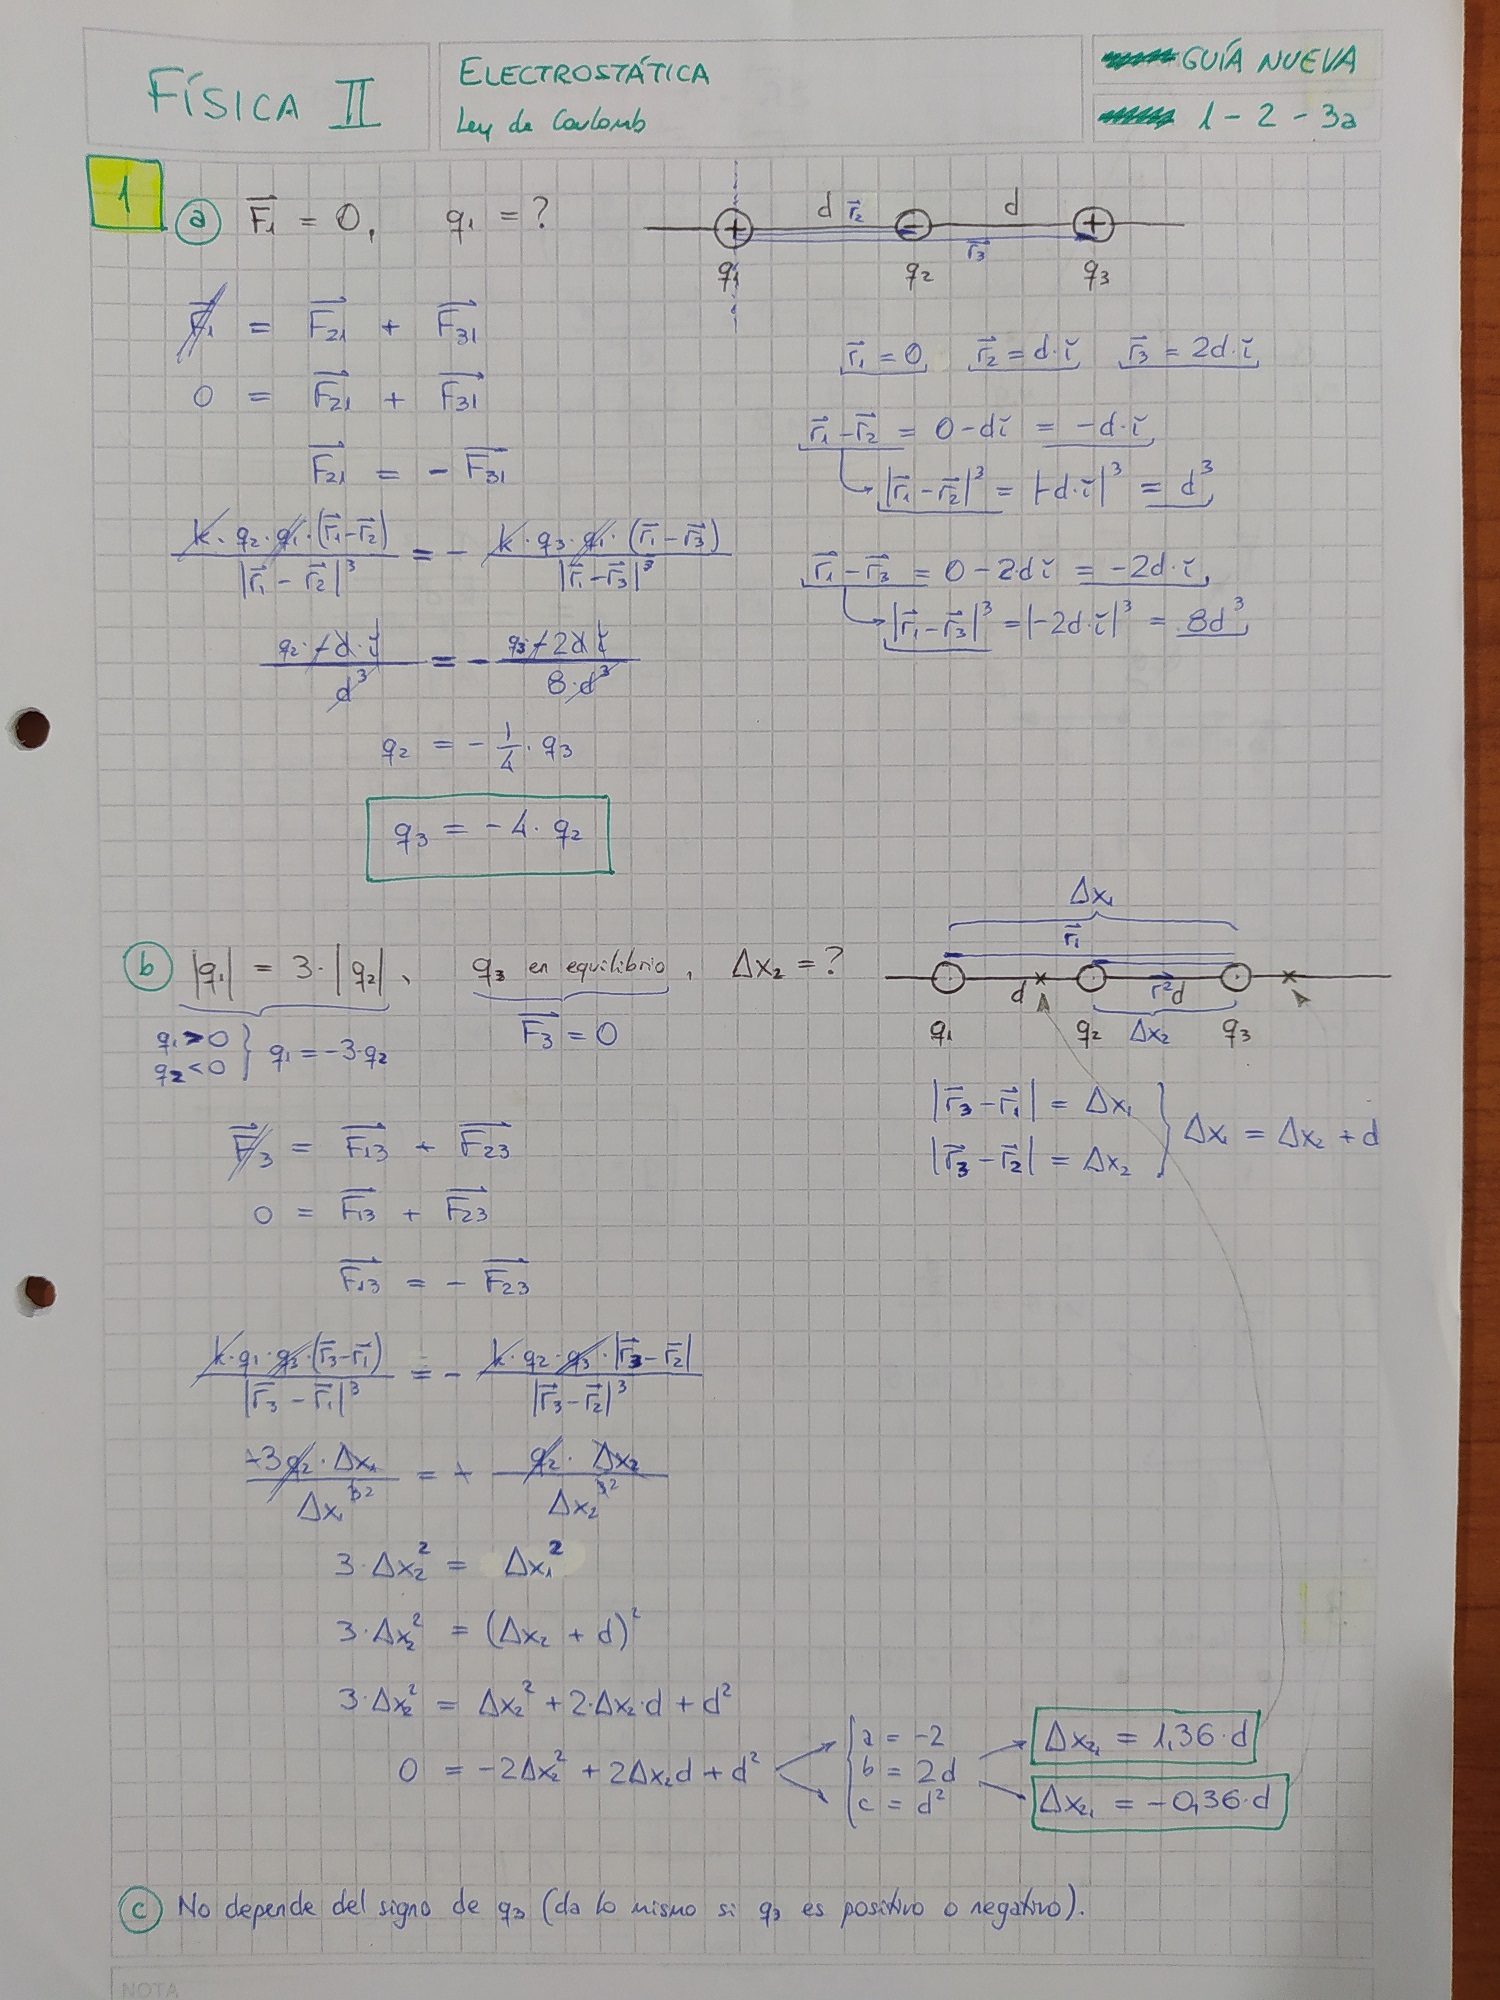 FÍSICA II
ELECTROSTÁTICA
Ley de Coulomb
GUÍA NUEVA
1 - 2 - 3a
1
a F⃗₁ = 0, q₁ = ?
d r⃗₂ d
r⃗₃
q₁ q₂ q₃
F⃗₁ = F⃗₂₁ + F⃗₃₁
0 = F⃗₂₁ + F⃗₃₁
F⃗₂₁ = - F⃗₃₁
k·q₂·q₁·(r⃗₁-r⃗₂) / |r⃗₁-r⃗₂|³ = - k·q₃·q₁·(r⃗₁-r⃗₃) / |r⃗₁-r⃗₃|³
q₂·-d·ĭ / d³ = - q₃·-2d ĭ / 8·d³
q₂ = - 1/4 · q₃
q₃ = -4·q₂
r⃗₁ = 0 r⃗₂ = d·ĭ r⃗₃ = 2d·ĭ
r⃗₁-r⃗₂ = 0-dĭ = -d·ĭ
|r⃗₁-r⃗₂|³ = |-d·ĭ|³ = d³
r⃗₁-r⃗₃ = 0-2dĭ = -2d·ĭ
|r⃗₁-r⃗₃|³ = |-2d·ĭ|³ = 8d³
b |q₁| = 3·|q₂|, q₃ en equilibrio, Δx₂ = ?
q₁>0
q₂<0 } q₁ = -3·q₂
F⃗₃ = 0
Δx₁
r⃗₁
d r⃗₂ d
q₁ q₂ Δx₂ q₃
|r⃗₃-r⃗₁| = Δx₁
|r⃗₃-r⃗₂| = Δx₂ } Δx₁ = Δx₂ + d
F⃗₃ = F⃗₁₃ + F⃗₂₃
0 = F⃗₁₃ + F⃗₂₃
F⃗₁₃ = - F⃗₂₃
k·q₁·q₃·(r⃗₃-r⃗₁) / |r⃗₃-r⃗₁|³ = - k·q₂·q₃·|r⃗₃-r⃗₂| / |r⃗₃-r⃗₂|³
-3q₂·Δx₁ / Δx₁² = - q₂·Δx₂ / Δx₂²
3·Δx₂² = Δx₁²
3·Δx₂² = (Δx₂ + d)²
3·Δx₂² = Δx₂² + 2·Δx₂·d + d²
0 = -2Δx₂² + 2Δx₂d + d²
a = -2
b = 2d
c = d²
Δx₂₁ = 1,36·d
Δx₂₁ = -0,36·d
c No depende del signo de q₃ (da lo mismo si q₃ es positivo o negativo).
NOTA